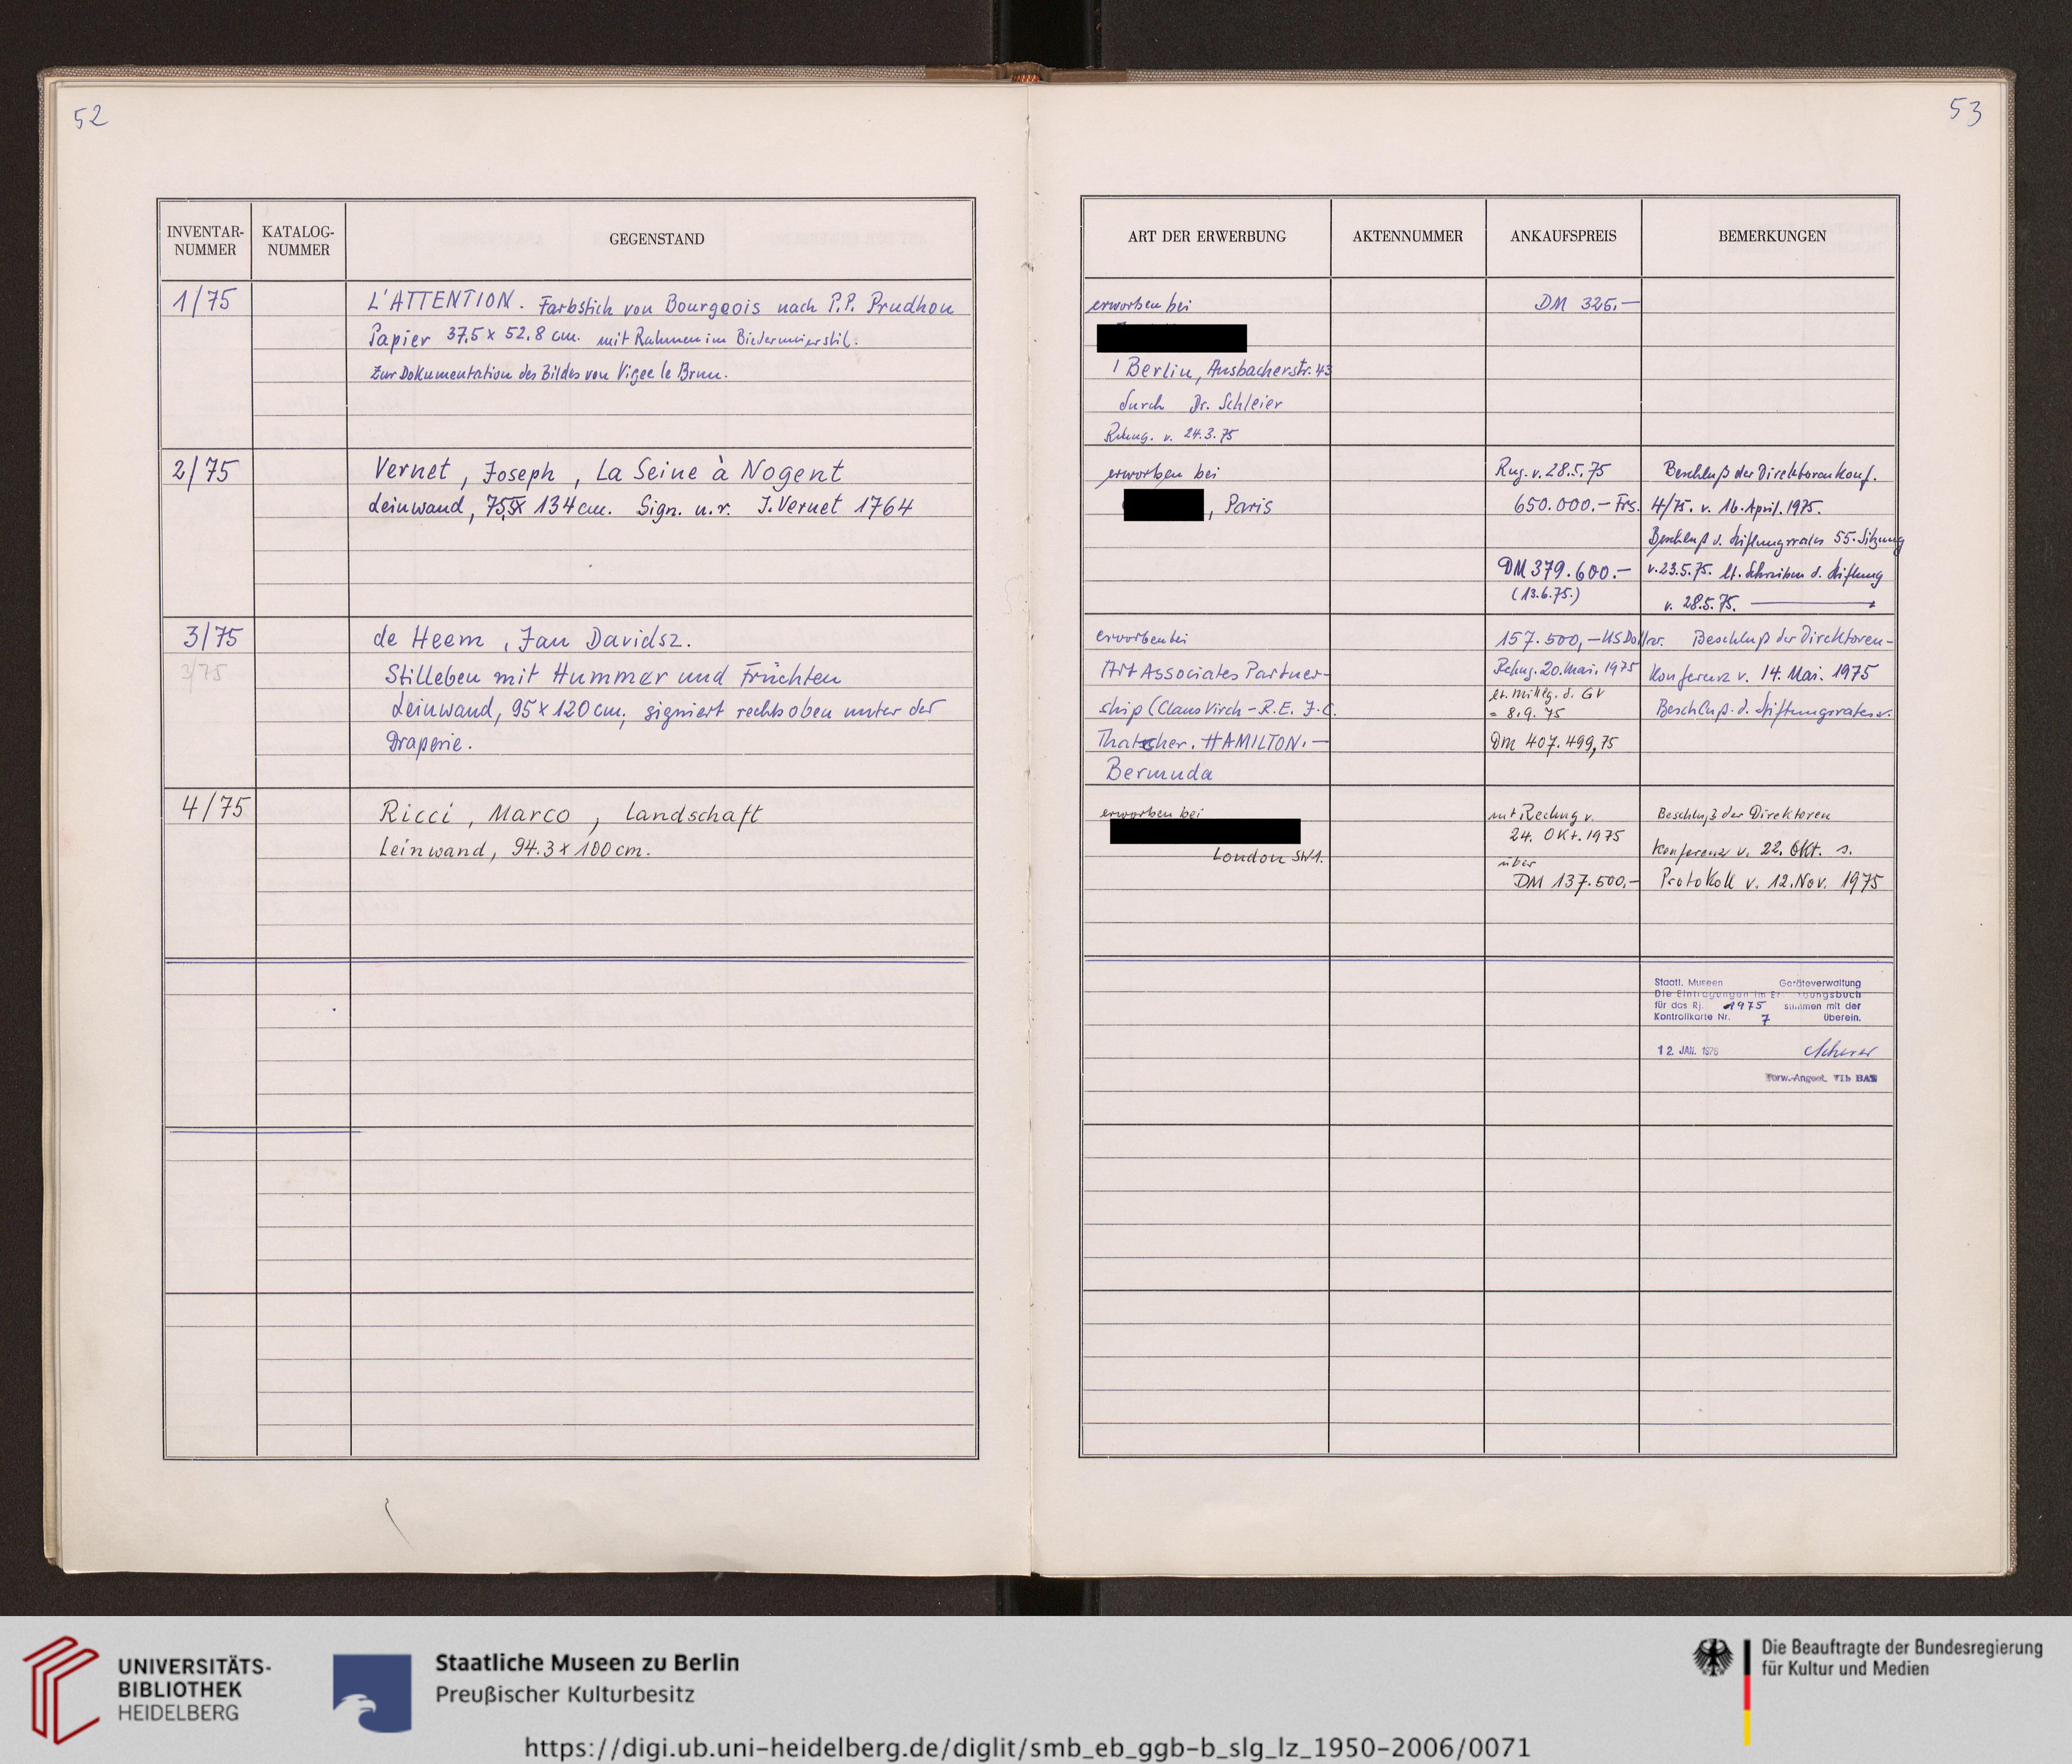 52
53
INVENTAR-
NUMMER
KATALOG-
NUMMER
GEGENSTAND
1/75
L'ATTENTION. Farbstich von Bourgeois nach P.P. Prudhon
Papier 37,5 x 52,8 cm. mit Rahmen im Biedermeierstil.
Zur Dokumentation des Bildes von Vigee le Brun.
2/75
Vernet, Joseph, La Seine à Nogent
Leinwand, 75,5 x 134 cm. Sign. u.r. J. Vernet 1764
3/75
3/75
de Heem, Jan Davidsz.
Stilleben mit Hummer und Früchten
Leinwand, 95 x 120 cm, signiert rechts oben unter der
Draperie.
4/75
Ricci, Marco, Landschaft
Leinwand, 94.3 x 100 cm.
ART DER ERWERBUNG
AKTENNUMMER
ANKAUFSPREIS
BEMERKUNGEN
erworben bei
1 Berlin, Ansbacherstr. 43
durch Dr. Schleier
Rchng. v. 24.3.75
DM 325.—
erworben bei
, Paris
Rng. v. 28.5.75
650.000.— Frs.
DM 379.600.—
(13.6.75.)
Beschluß der Direktorenkonf.
4/75. v. 16. April. 1975.
Beschluß d. Stiftungsrates 55. Sitzung
v. 23.5.75. lt. Schreiben d. Stiftung
v. 28.5.75.
erworben bei
Art Associates Partner-
ship (Claus Virch - R.E. J.C.
Thatcher. HAMILTON.—
Bermuda
157.500,— US Dollar.
Rchng. 20. Mai. 1975
lt. Mitteg. d. GV
= 8.9.75
DM 407.499,75
Beschluß der Direktoren-
Konferenz v. 14. Mai. 1975
Beschluß. d. Stiftungsrates v.
erworben bei
London SW1.
mit Rechng v.
24. Okt. 1975
über
DM 137.500.-
Beschluß der Direktoren
Konferenz v. 22. Okt. s.
Protokoll v. 12. Nov. 1975
Staatl. Museen Geräteverwaltung
Die Eintragungen im
für das Rj. 1975 stimmen mit der
Kontrollkarte Nr. 7 überein.
12. JAN. 1976
Verw.-Angest. VIb BAT
UNIVERSITÄTS-
BIBLIOTHEK
HEIDELBERG
Staatliche Museen zu Berlin
Preußischer Kulturbesitz
Die Beauftragte der Bundesregierung
für Kultur und Medien
https://digi.ub.uni-heidelberg.de/diglit/smb_eb_ggb-b_slg_lz_1950-2006/0071